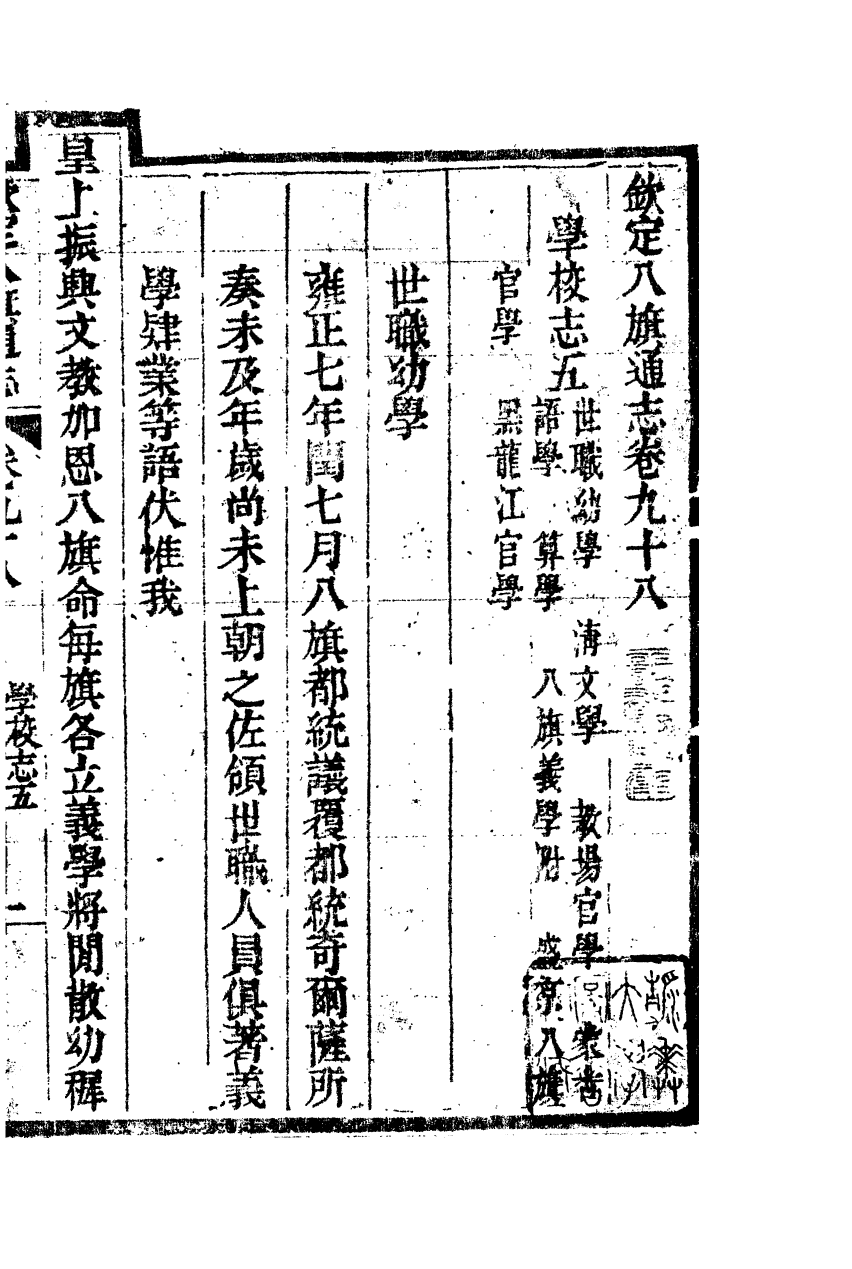 欽定八旗通志卷九十八
學校志五
世職幼學　清文學　教場官學　蒙古
語學　算學　八旗義學附　盛京八旗
官學　黑龍江官學
世職幼學
雍正七年閏七月八旗都統議覆都統奇爾薩所
奏未及年歲尚未上朝之佐領世職人員俱著義
學肄業等語伏惟我
皇上振興文教加恩八旗命每旗各立義學將閒散幼穉
學校志五
一